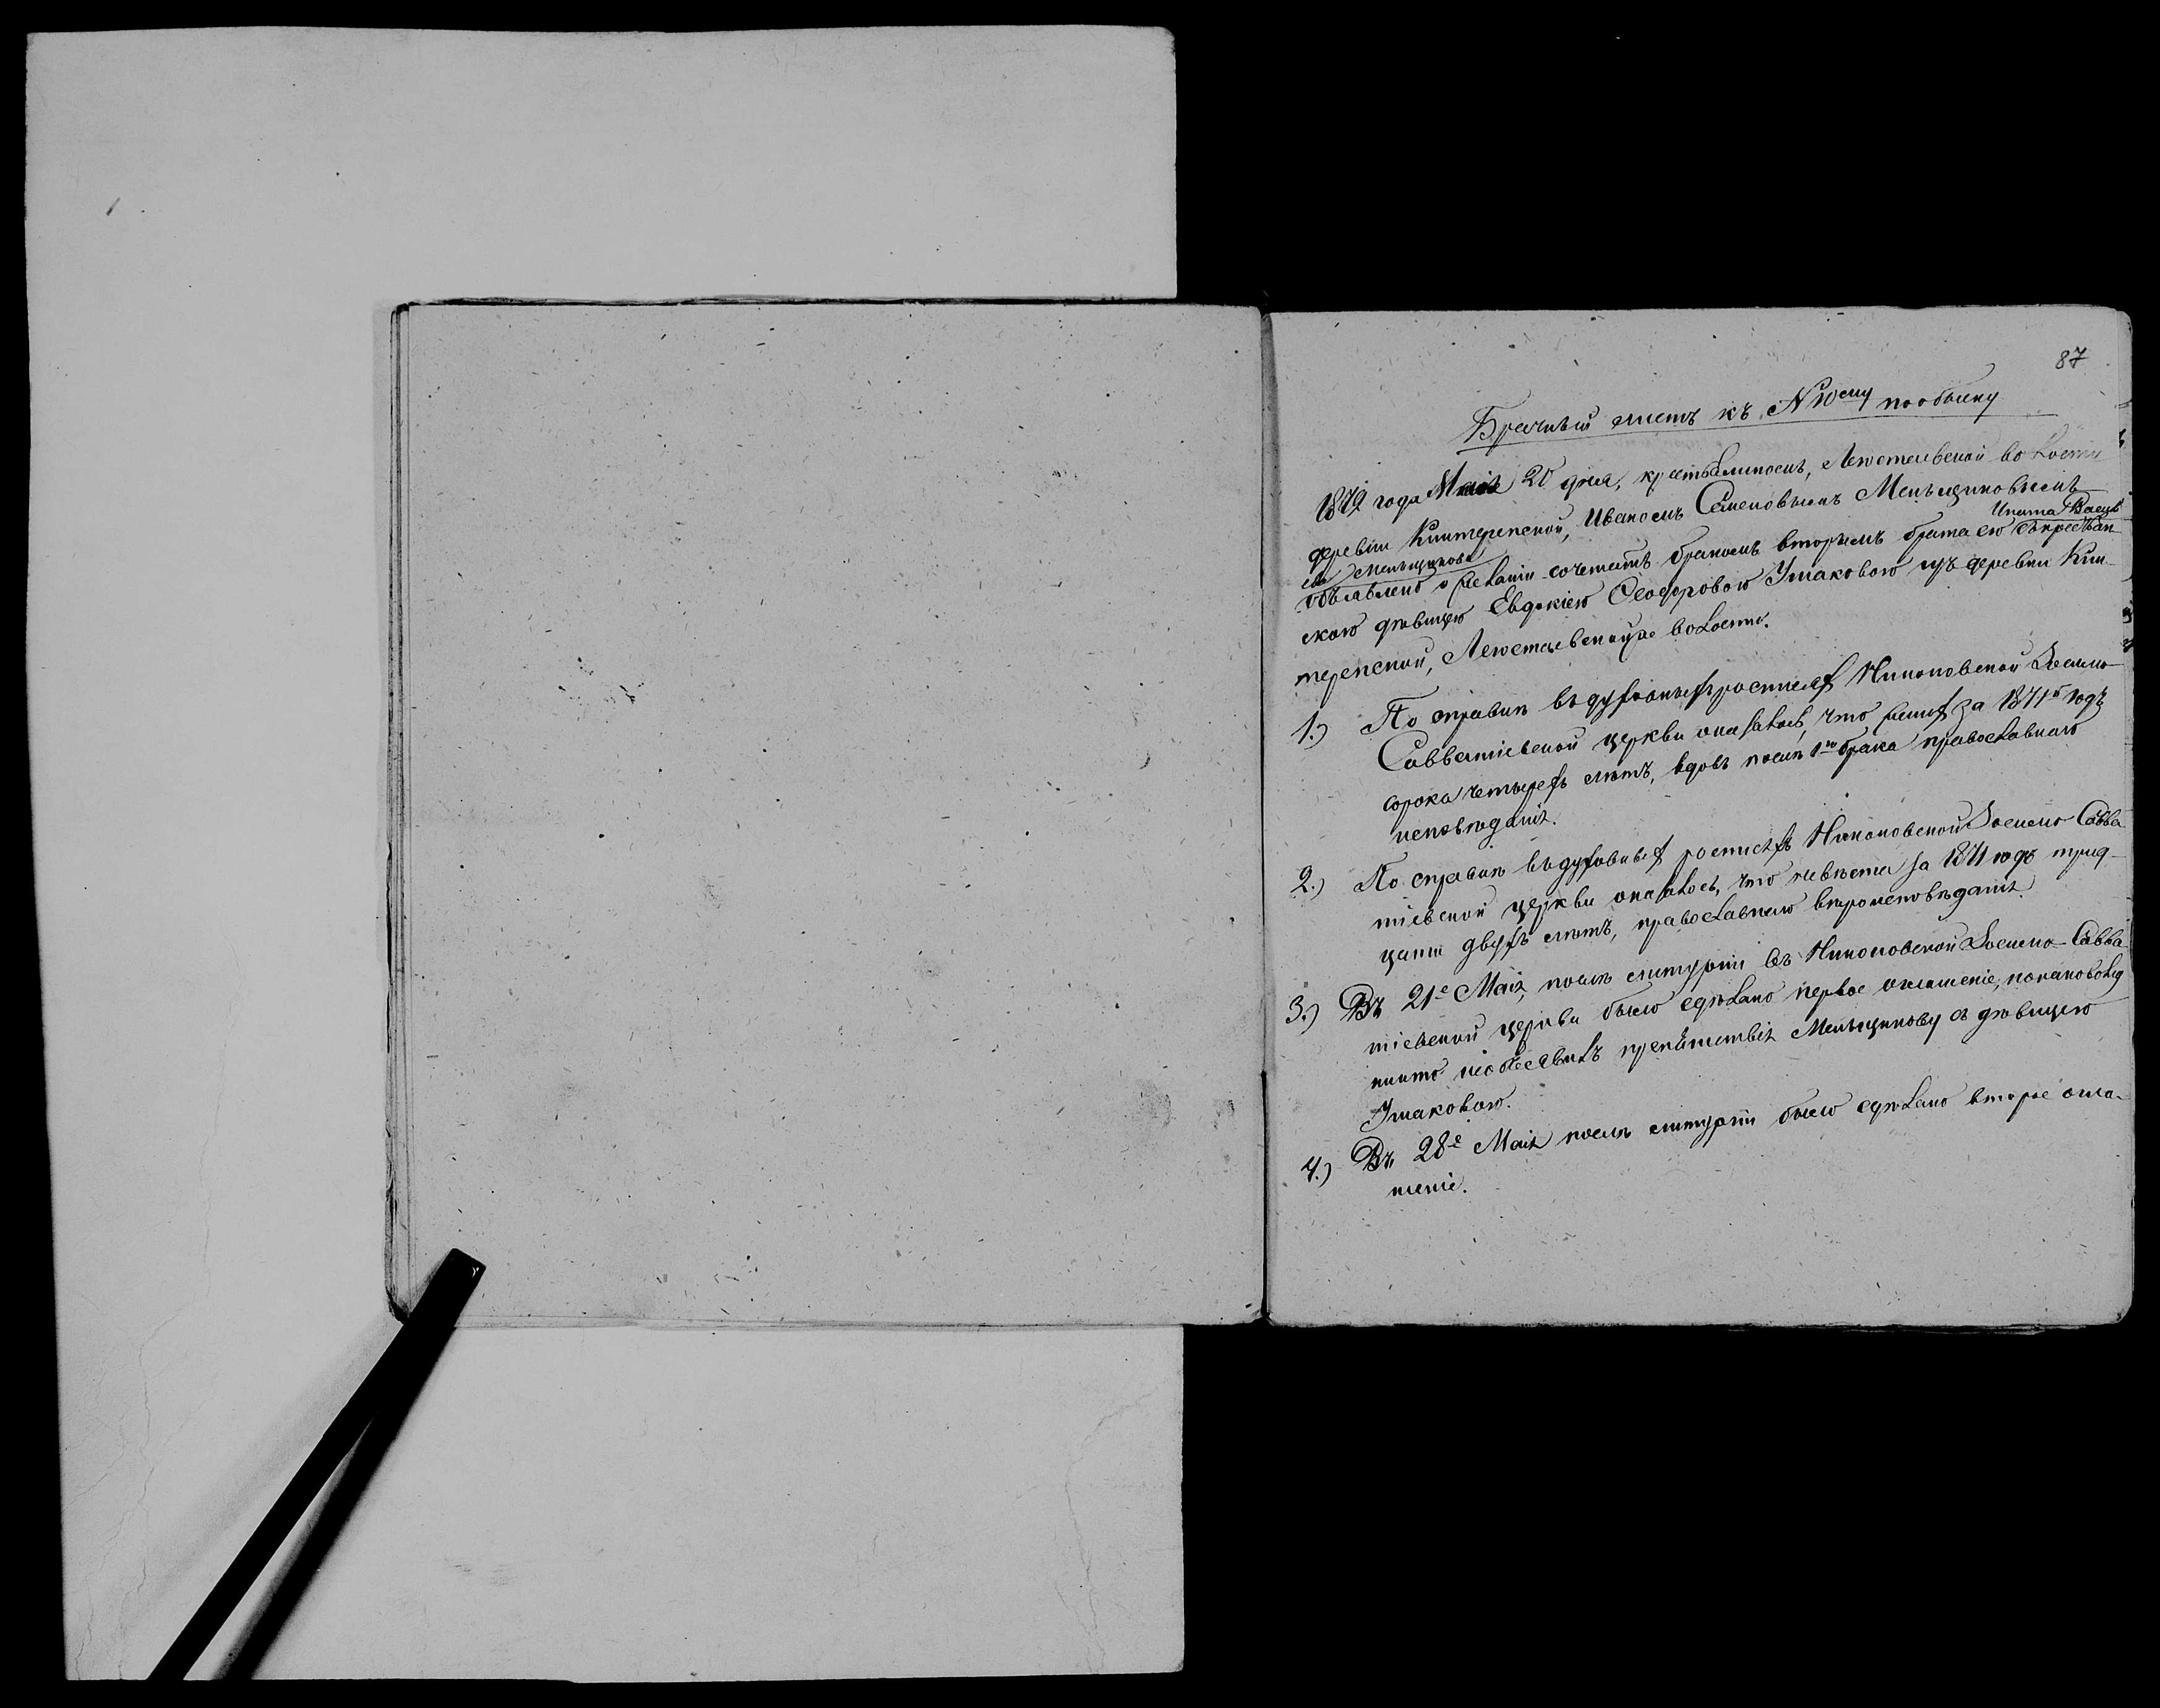 87
Брачный листъ къ N 10ому по обыску
1872 года Маія 20 дня, крестьяниномъ, волости
деревни Киитерпской, Иваномъ Семеновымъ Меньщиковымъ
Ипата
ева Меньщикова
объявлено о желаніи сочетать бракомъ вторымъ брата его съ крестьян-
скою дѣвицею Евдокіею Ѳеодоровою Ушаковою изъ деревни Кии-
терпской, волости.
1.) По справкѣ въ духовныхъ росписяхъ Никоновской Зосимо-
Савватіевской церкви оказалось, что жених за 1871й годъ
сорока четырехъ лѣтъ, вдовъ послѣ 1го брака православнаго
исповѣданія.
2.) По справкѣ въ духовныхъ росписяхъ Никоновской Зосимо-Савва-
тіевской церкви оказалось, что невѣста за 1871 годъ трид-
цати двухъ лѣтъ, православнаго вѣроисповѣданія.
3.) Въ 21е Маія, послѣ литургіи въ Никоновской Зосимо-Савва-
тіевской церкви было сдѣлано первое оглашеніе, по каковому
никто не объявилъ препятствія Меньщикову съ дѣвицею
Ушаковою.
4.) Въ 28е Маія послѣ литургіи было сдѣлано второе огла-
шеніе.